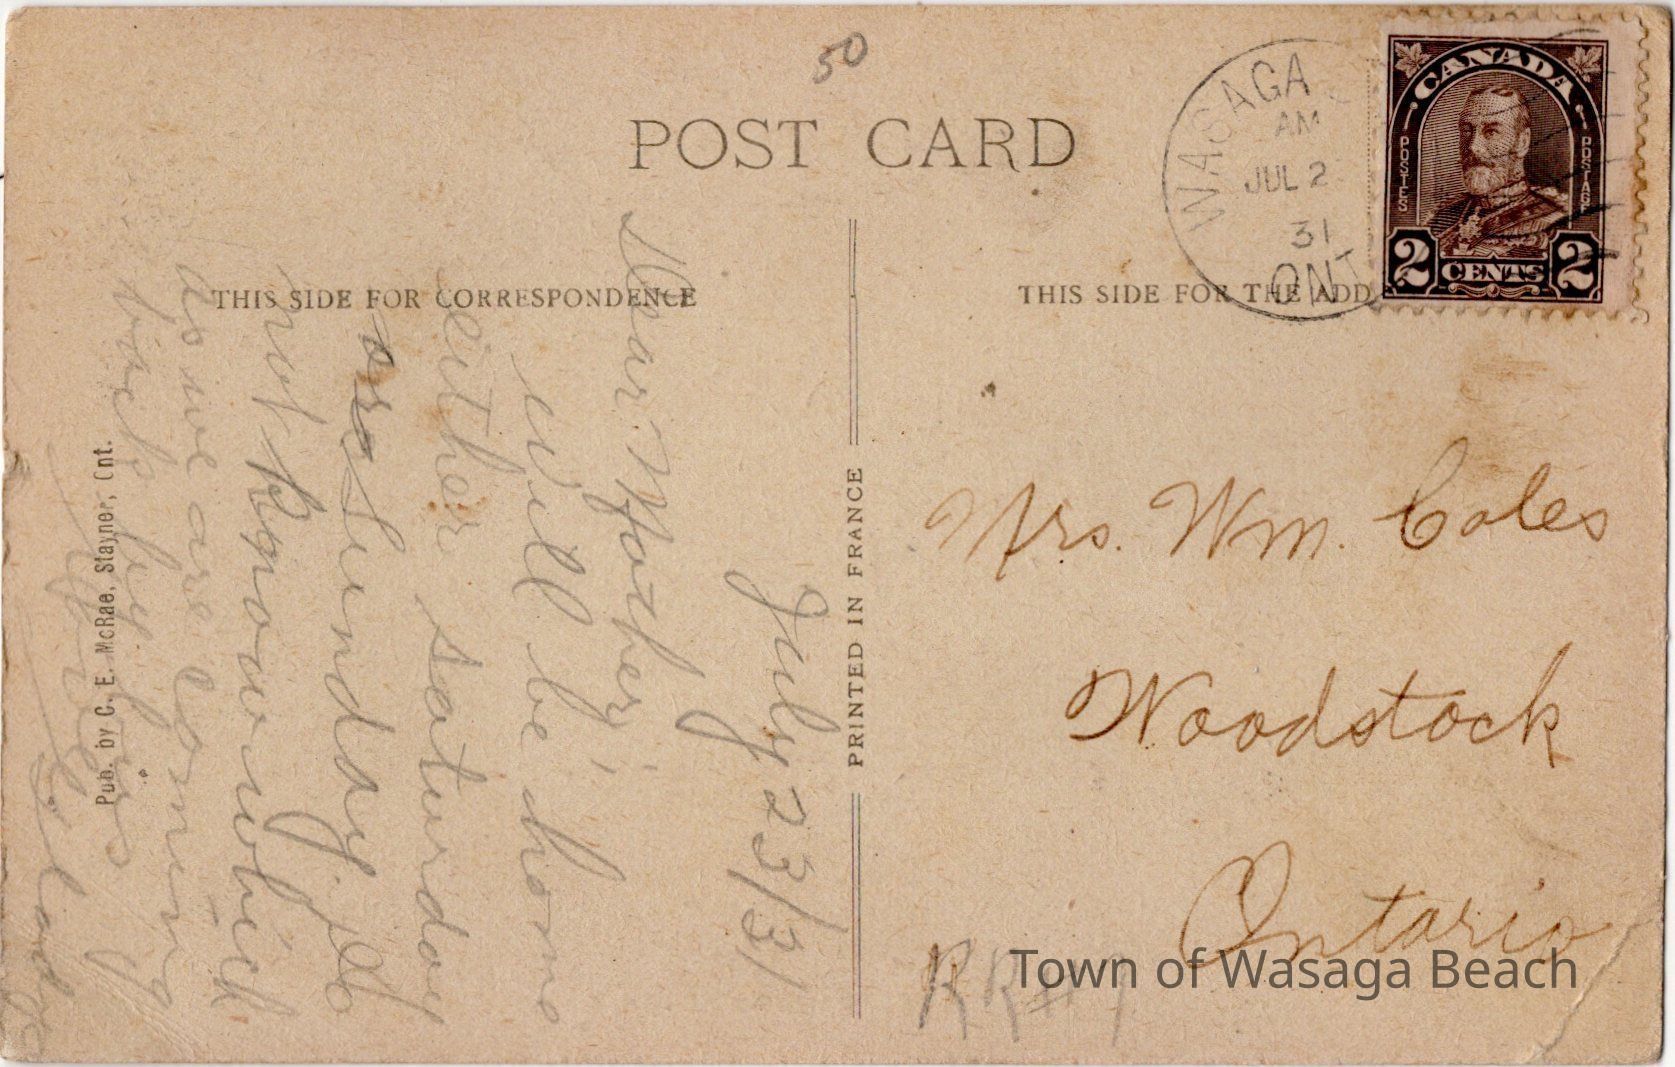 50
POST CARD
WASAGA
AM
JUL 2
31
ONT
CANADA
POSTES
POSTAGE
2 CENTS 2
THIS SIDE FOR CORRESPONDENCE
THIS SIDE FOR THE ADD
PRINTED IN FRANCE
Pub. by C. E. McRae, Stayner, Ont.
July 23/31
Dear Mother;
will be home
either saturday
or sunday. Do
not know which
as we are coming
back by
Mrs. Wm. Coles
Woodstock
Ontario
RR#1
Town of Wasaga Beach